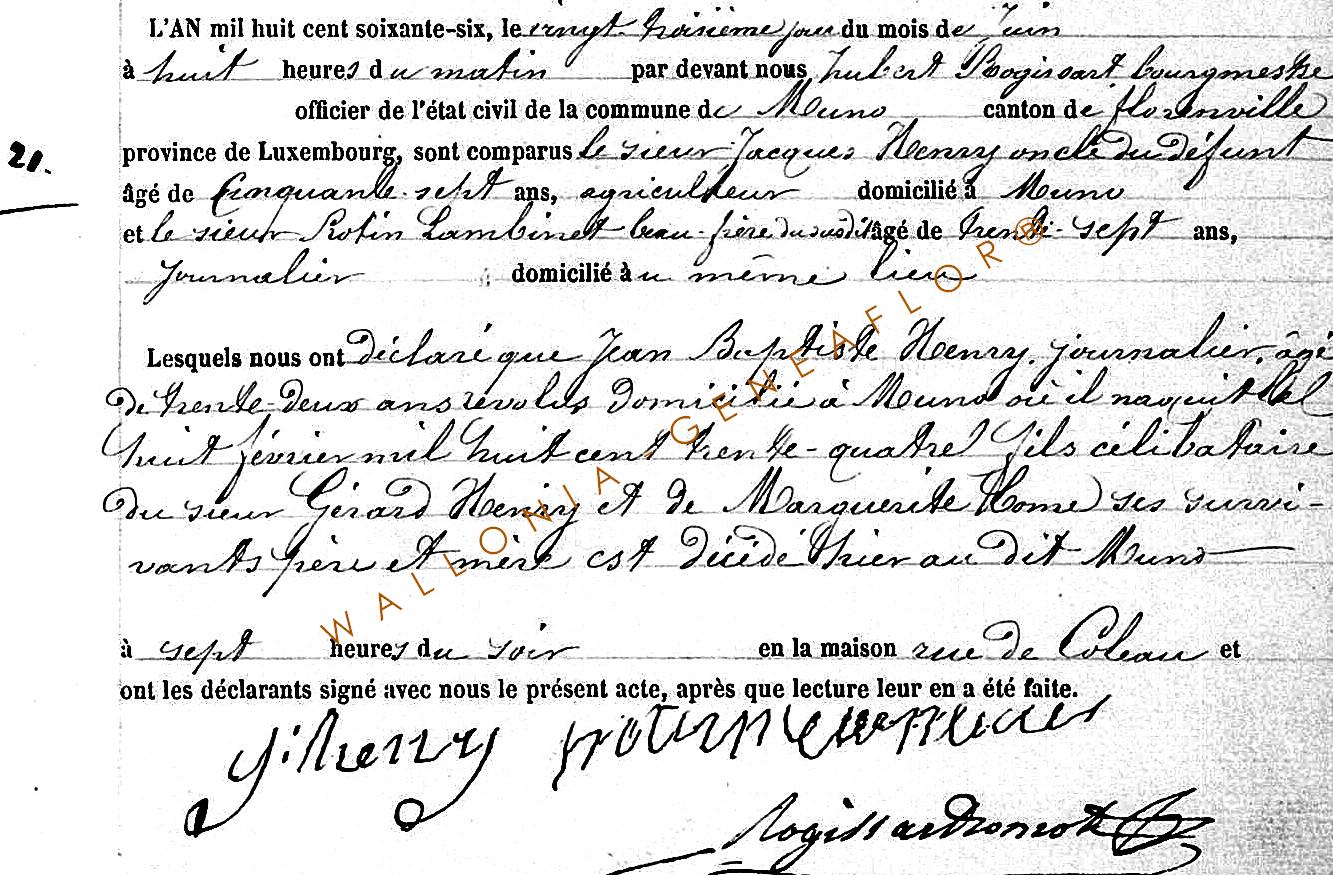 L'AN mil huit cent soixante-six, le vingt-troisième jour du mois de Juin
à huit heures du matin par devant nous hubert Rogissart bourgmestre
officier de l'état civil de la commune de Muno canton de florenville
21. province de Luxembourg, sont comparus le sieur Jacques Henry oncle du défunt
âgé de Cinquante-sept ans, agriculteur domicilié à Muno
et le sieur Rotin Lambinet beau-frère du susdit âgé de trente-sept ans,
journalier domicilié au même lieu
Lesquels nous ont déclaré que Jean Baptiste Henry, journalier, âgé
de trente-deux ans révolus domicilié à Muno où il naquit le
huit février mil huit cent trente-quatre fils célibataire
du sieur Gérard Henry et de Marguerite Home ses survi-
vants père et mère est décédé hier au dit Muno
à sept heures du soir en la maison rue de Coleau et
ont les déclarants signé avec nous le présent acte, après que lecture leur en a été faite.
J. henry
WALLONIA GENEAFLOR®